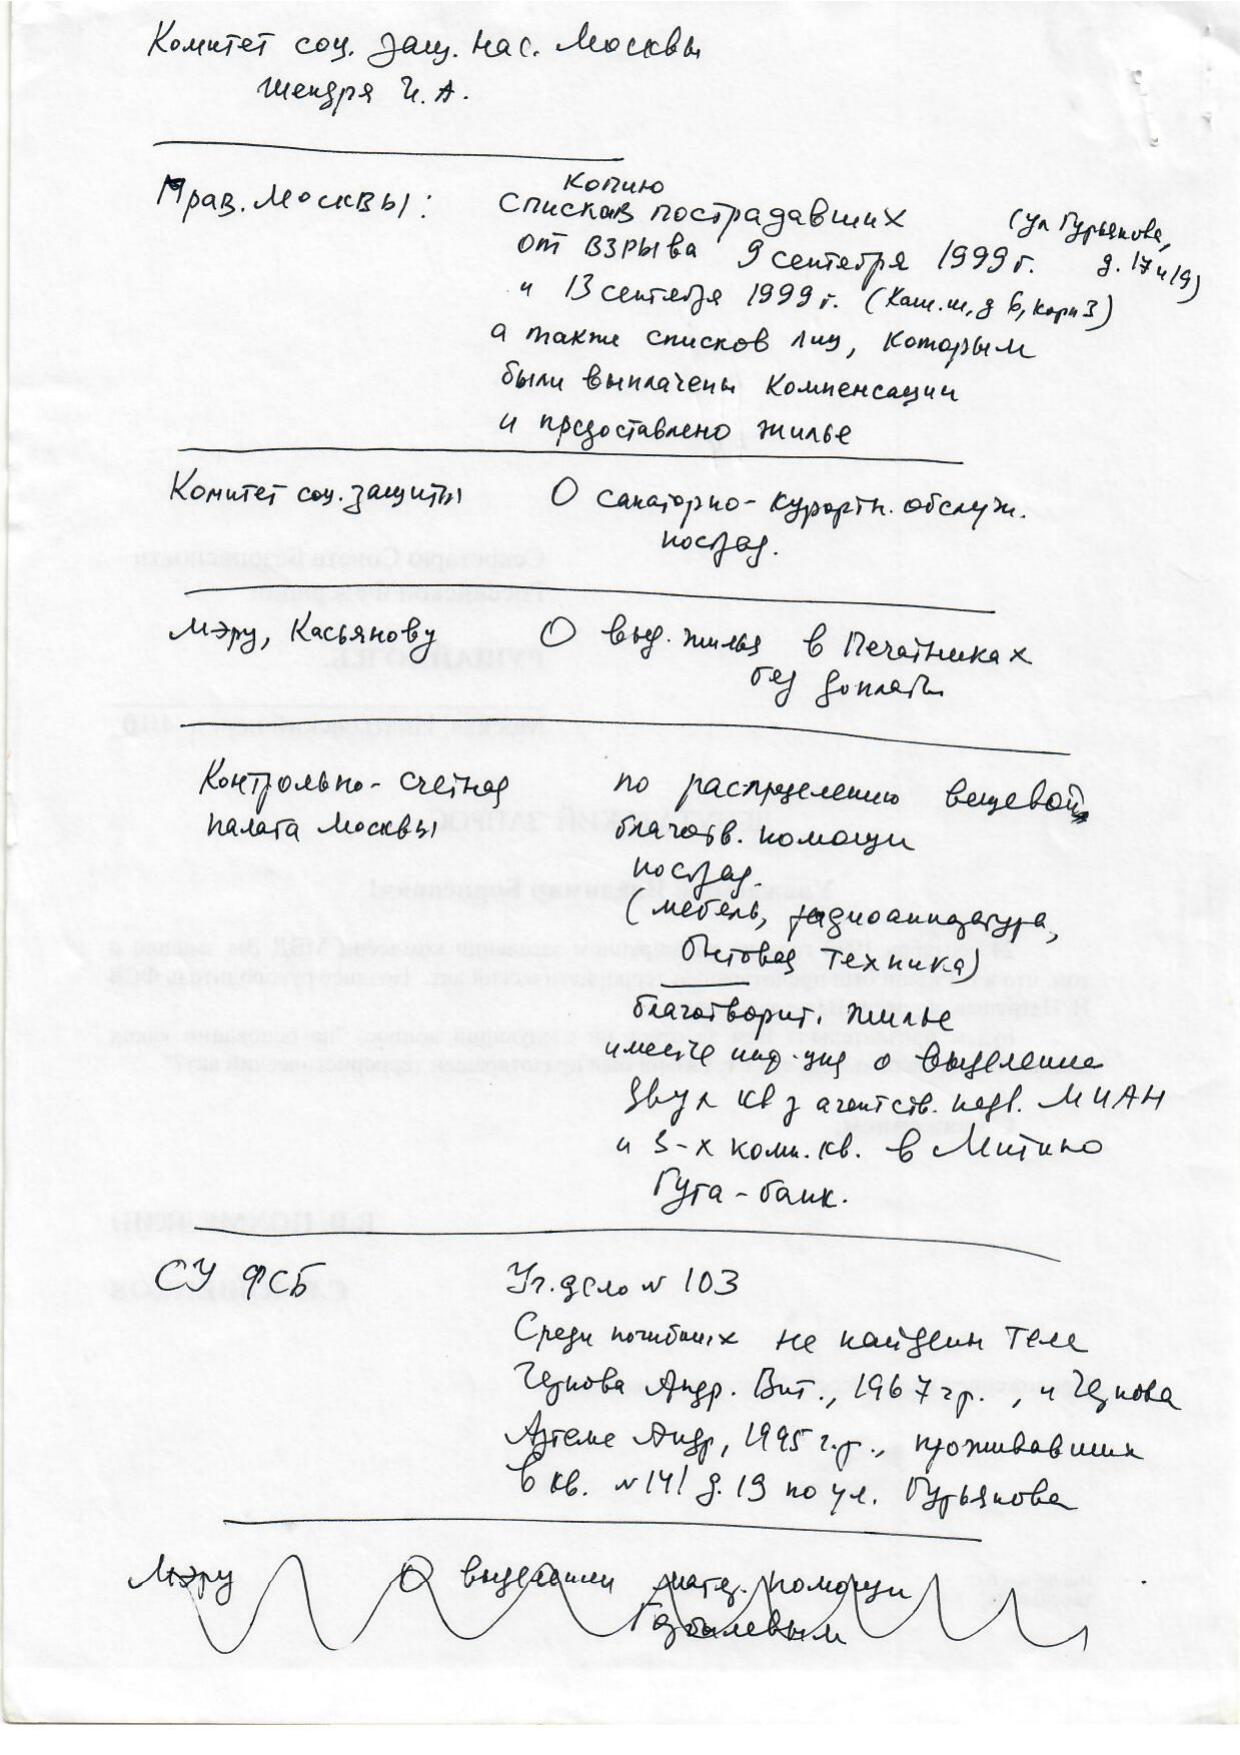 Комитет соц. защ. нас. Москвы
Шендря И. А.
Прав. Москвы:
копию
списков пострадавших
(ул Гурьянова,
от взрыва 9 сентября 1999 г.
д. 17 и 19)
и 13 сентября 1999 г. (Каш. ш, д 6, корп 3)
а также списков лиц, которым
были выплачены компенсации
и предоставлено жилье
Комитет соц. защиты О санаторно-курортн. обслуж.
пострад.
Мэру, Касьянову О выд. жилья в Печатниках
без доплаты
Контрольно-счетная по распределению вещевой
палата Москвы благотв. помощи
пострад.
(мебель, радиоаппаратура,
бытовая техника)
благотворит. жилье
имеется инф-ция о выделении
двух кв агентств. недв. МИАН
и 3-х комн. кв. в Митино
Гута-банк.
СУ ФСБ Уг. дело № 103
Среди погибших не найдены тела
Чернова Андр. Вит., 1967 г р., и Чернова
Артема Андр, 1995 г.р., проживавших
в кв. № 141 д. 19 по ул. Гурьянова
Мэру О выделении матер. помощи